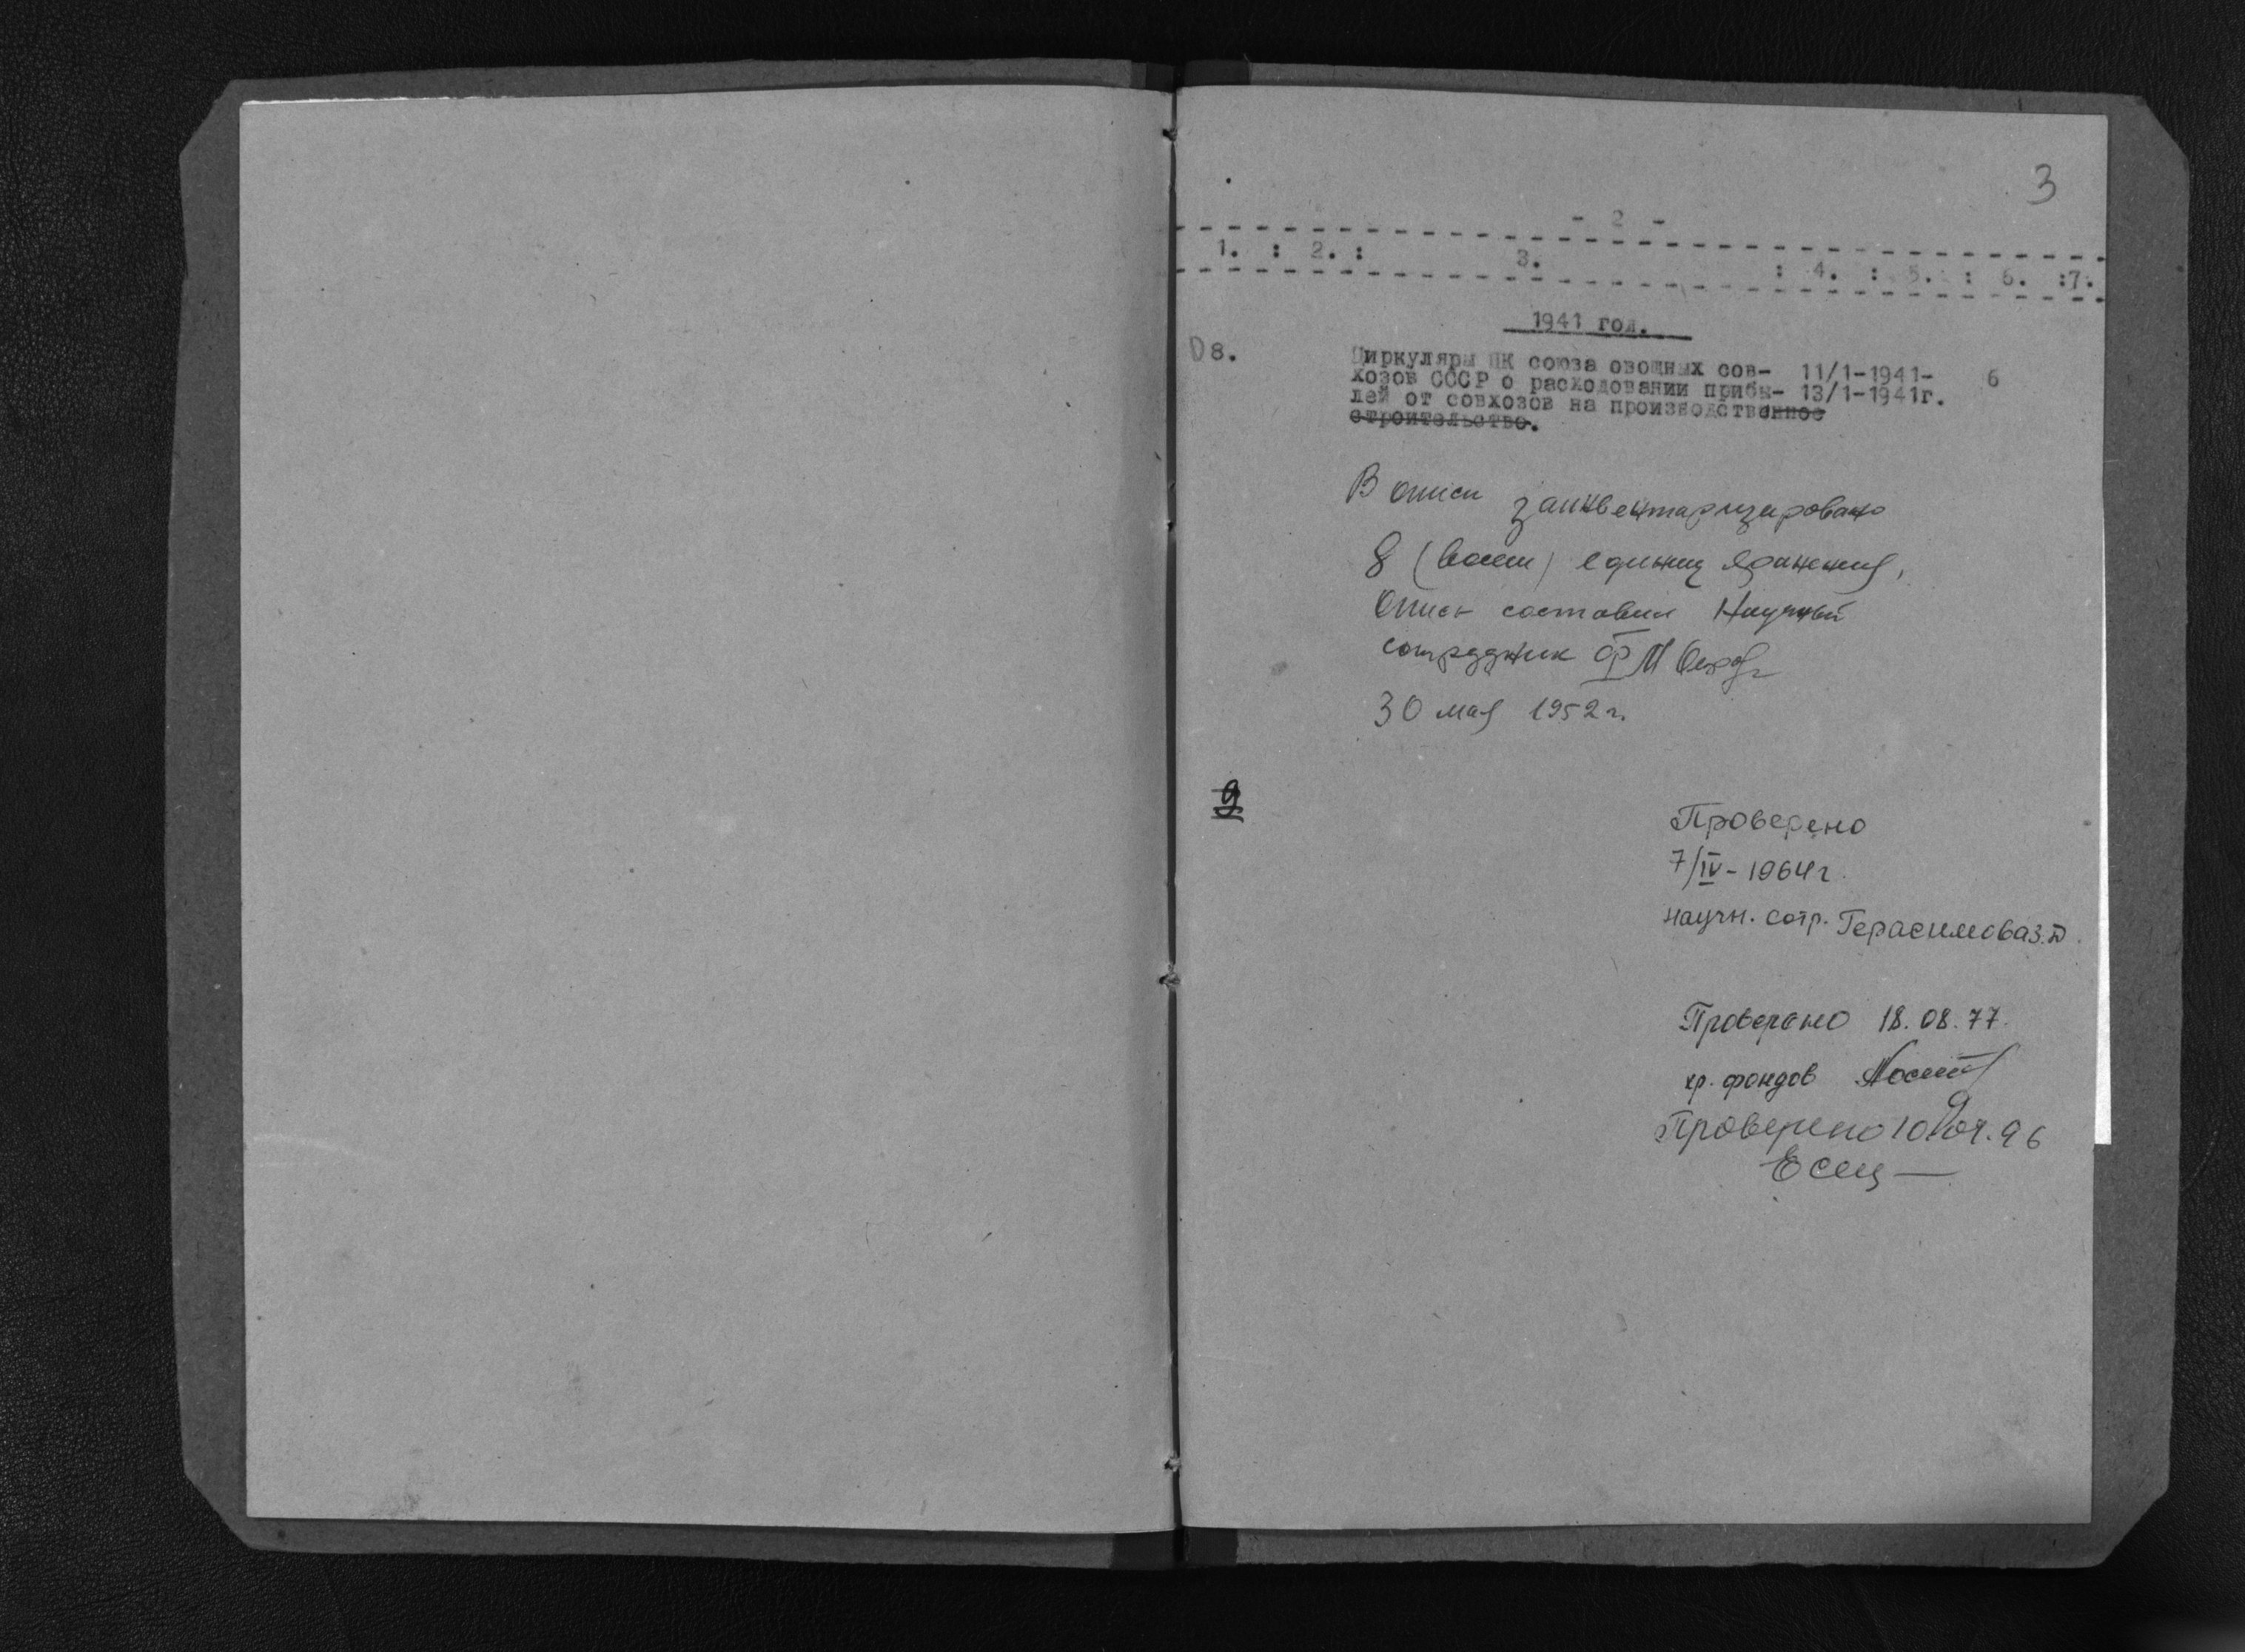 3
- 2 -
1. : 2. : 3. : 4. : 5. : 6. :7.
1941 год.
8. Циркуляры ЦК союза овощных сов- 11/1-1941- 6
хозов СССР о расходовании прибы- 13/1-1941г.
лей от совхозов на производственное
строительство.
В описи заинвентаризировано
8 (восем) единиц хранения,
Опись составил Научный
сотрудник
30 мая 1952 г.
9
Проверено
7/IV - 1964 г.
научн. сотр. Герасимова З.Д.
Проверено 18.08.77.
хр. фондов
Проверено 10.04.96